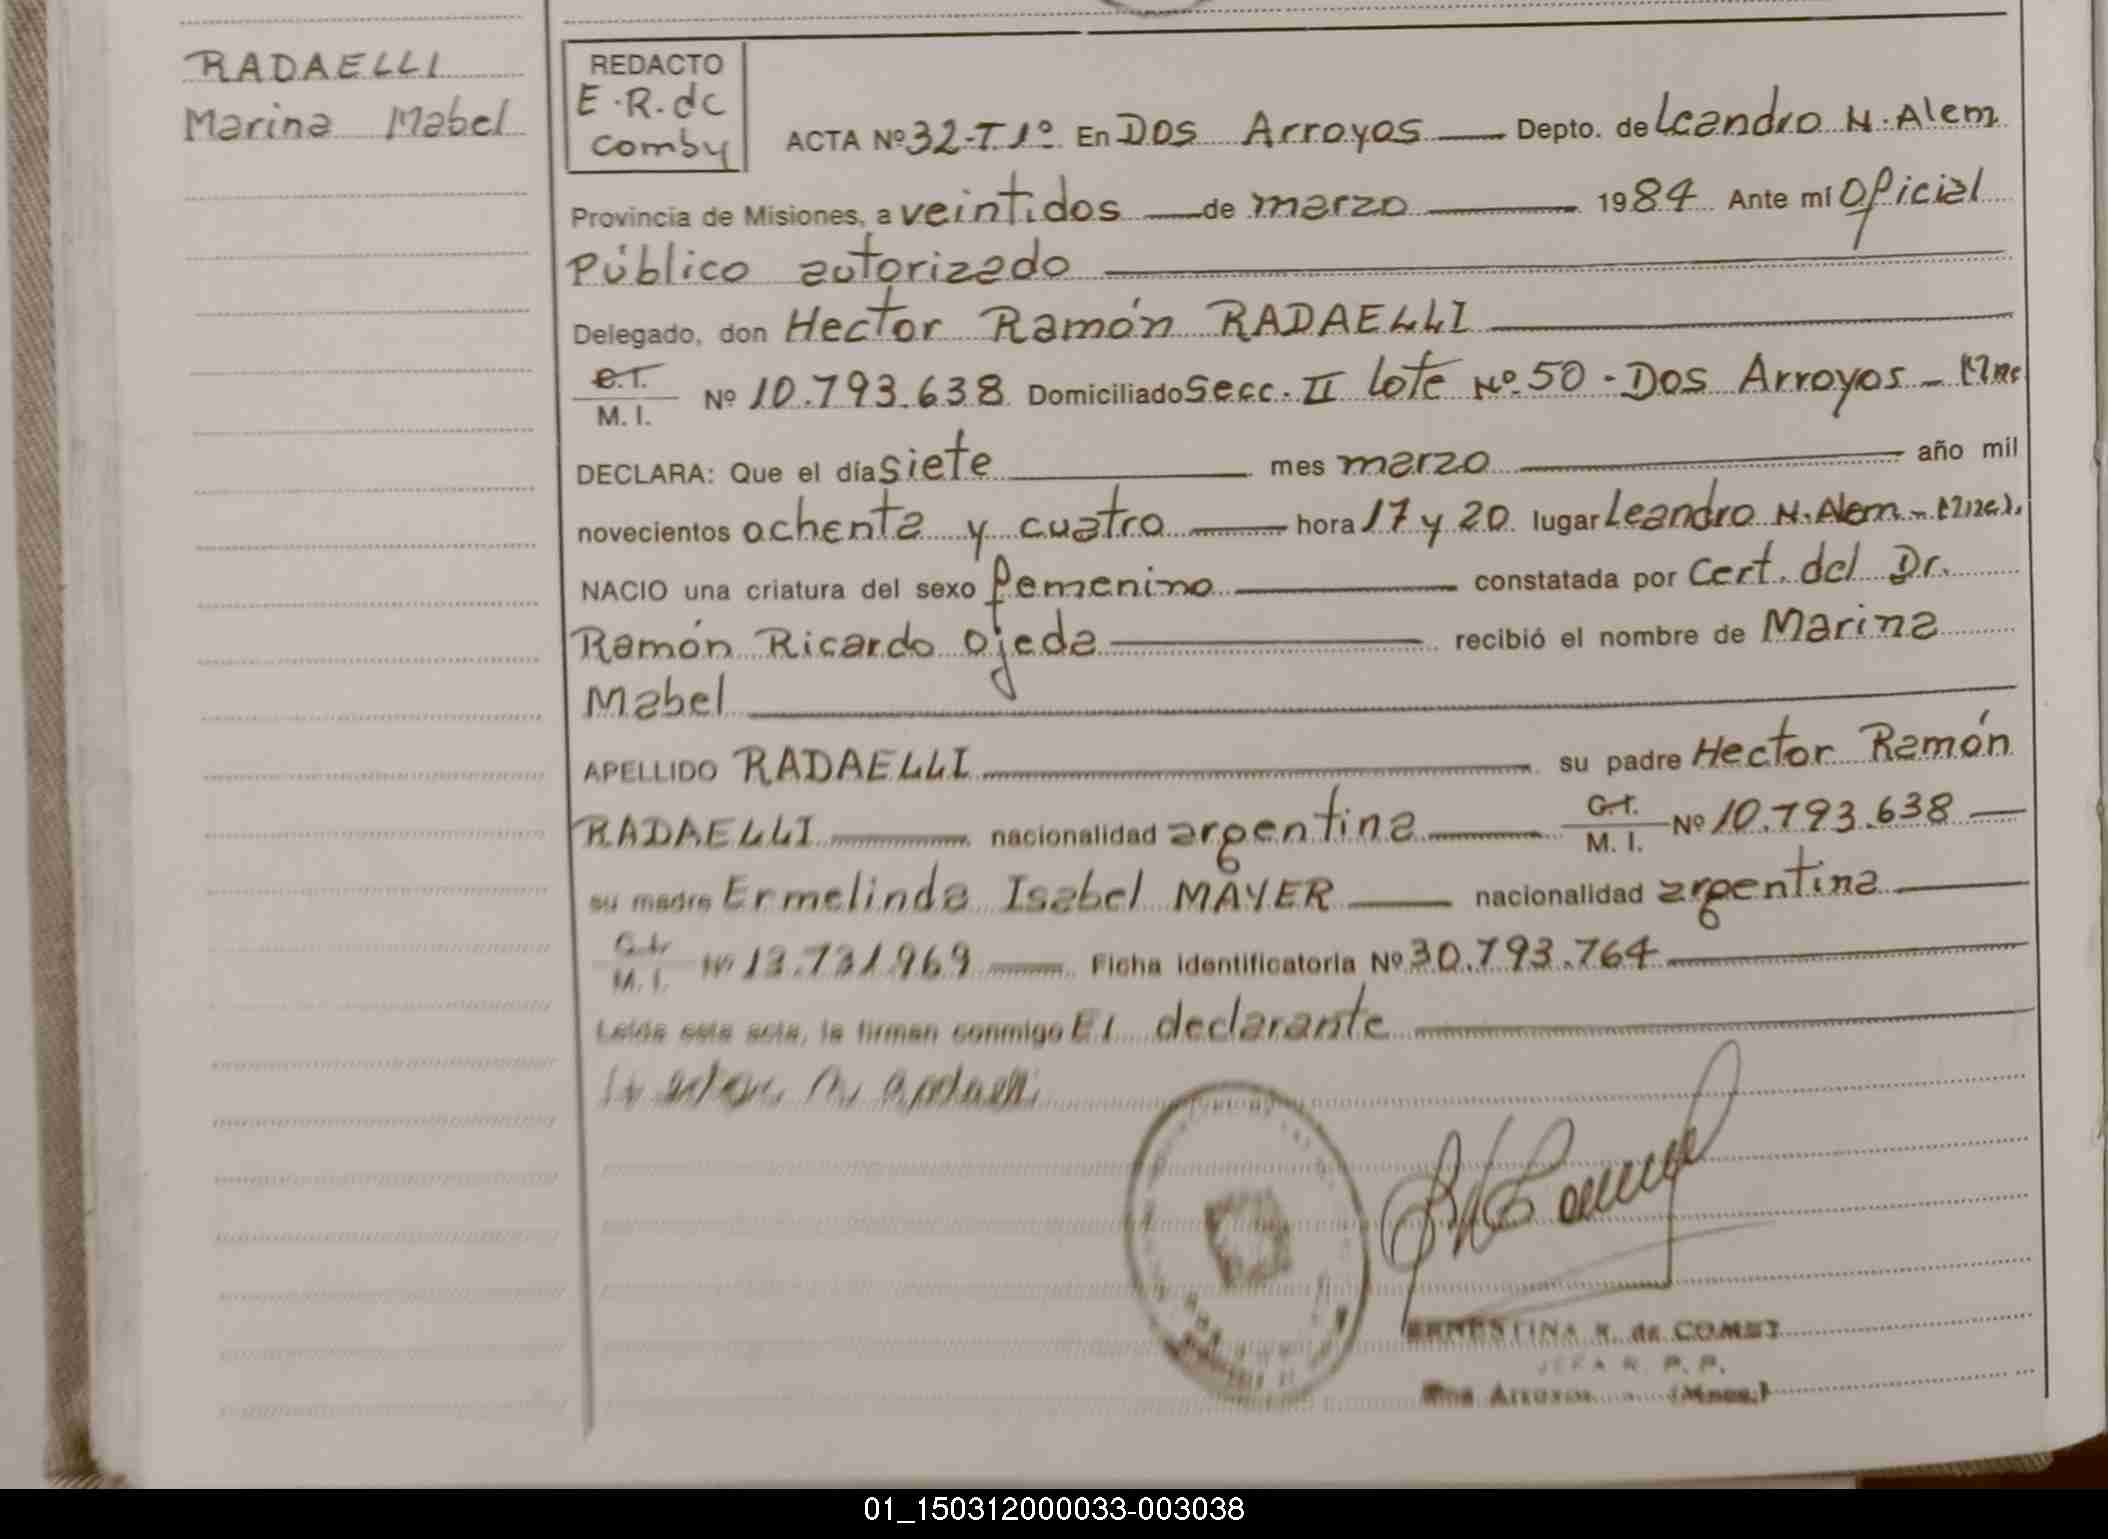 RADAELLI
Marina Mabel
REDACTO
E.R.de
Comby
ACTA Nº 32-T 1º En Dos Arroyos Depto. de Leandro N. Alem
Provincia de Misiones, a veintidos de marzo 1984 Ante mí Oficial
Público autorizado
Delegado, don Hector Ramón RADAELLI
C.I.
M. I. Nº 10.793.638 Domiciliado Secc. II lote Nº 50 - Dos Arroyos -
DECLARA: Que el día siete mes marzo año mil
novecientos ochenta y cuatro hora 17 y 20 lugar Leandro N. Alem -
NACIO una criatura del sexo femenino constatada por Cert. del Dr.
Ramón Ricardo Ojeda recibió el nombre de Marina
Mabel
APELLIDO RADAELLI su padre Hector Ramón
RADAELLI nacionalidad argentina C.I. M. I. Nº 10.793.638
su madre Ermelinda Isabel MAYER nacionalidad argentina
M. I. Nº 13.731.969 Ficha identificatoria Nº 30.793.764
Leída esta acta, la firman conmigo El declarante
ERNESTINA R. de COMBY
JEFA R. P. P.
Dos Arroyos (Mnes.)
01_150312000033-003038